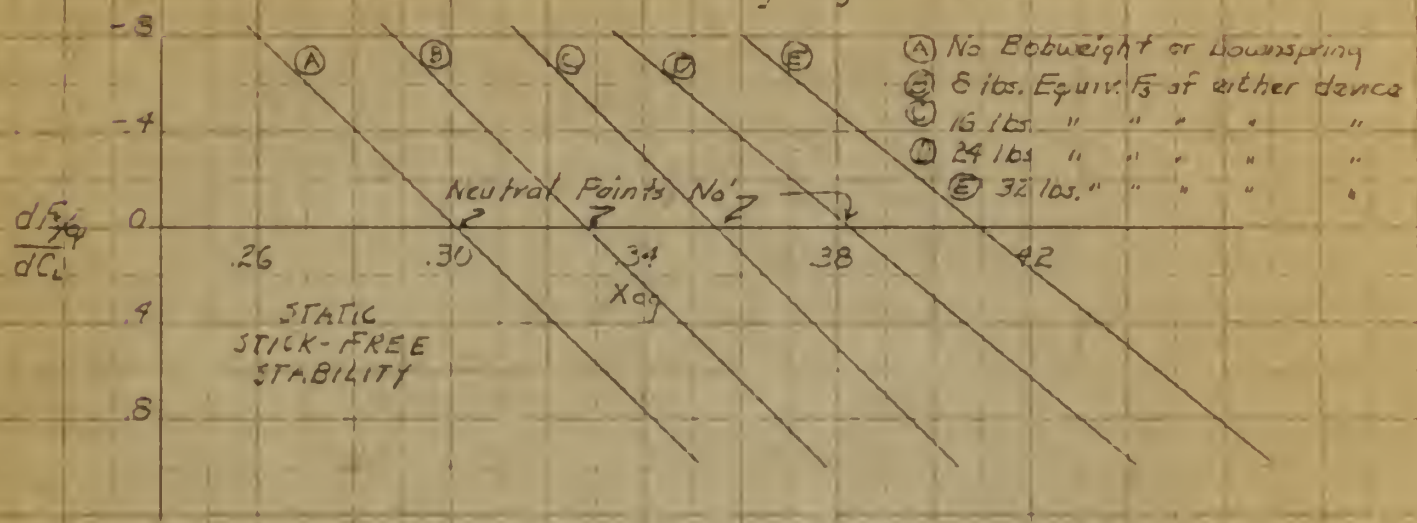 -.8
Ⓐ Ⓑ Ⓒ Ⓓ Ⓔ
Ⓐ No Bobweight or Downspring
Ⓑ 8 lbs. Equiv. Fs of either device
-.4
Ⓒ 16 lbs. " " " " "
Ⓓ 24 lbs " " " " "
Ⓔ 32 lbs. " " " " "
Neutral Points No'
0
dCL
.26 .30 .34 .38 .42
Xcg
.4
STATIC
STICK-FREE
STABILITY
.8